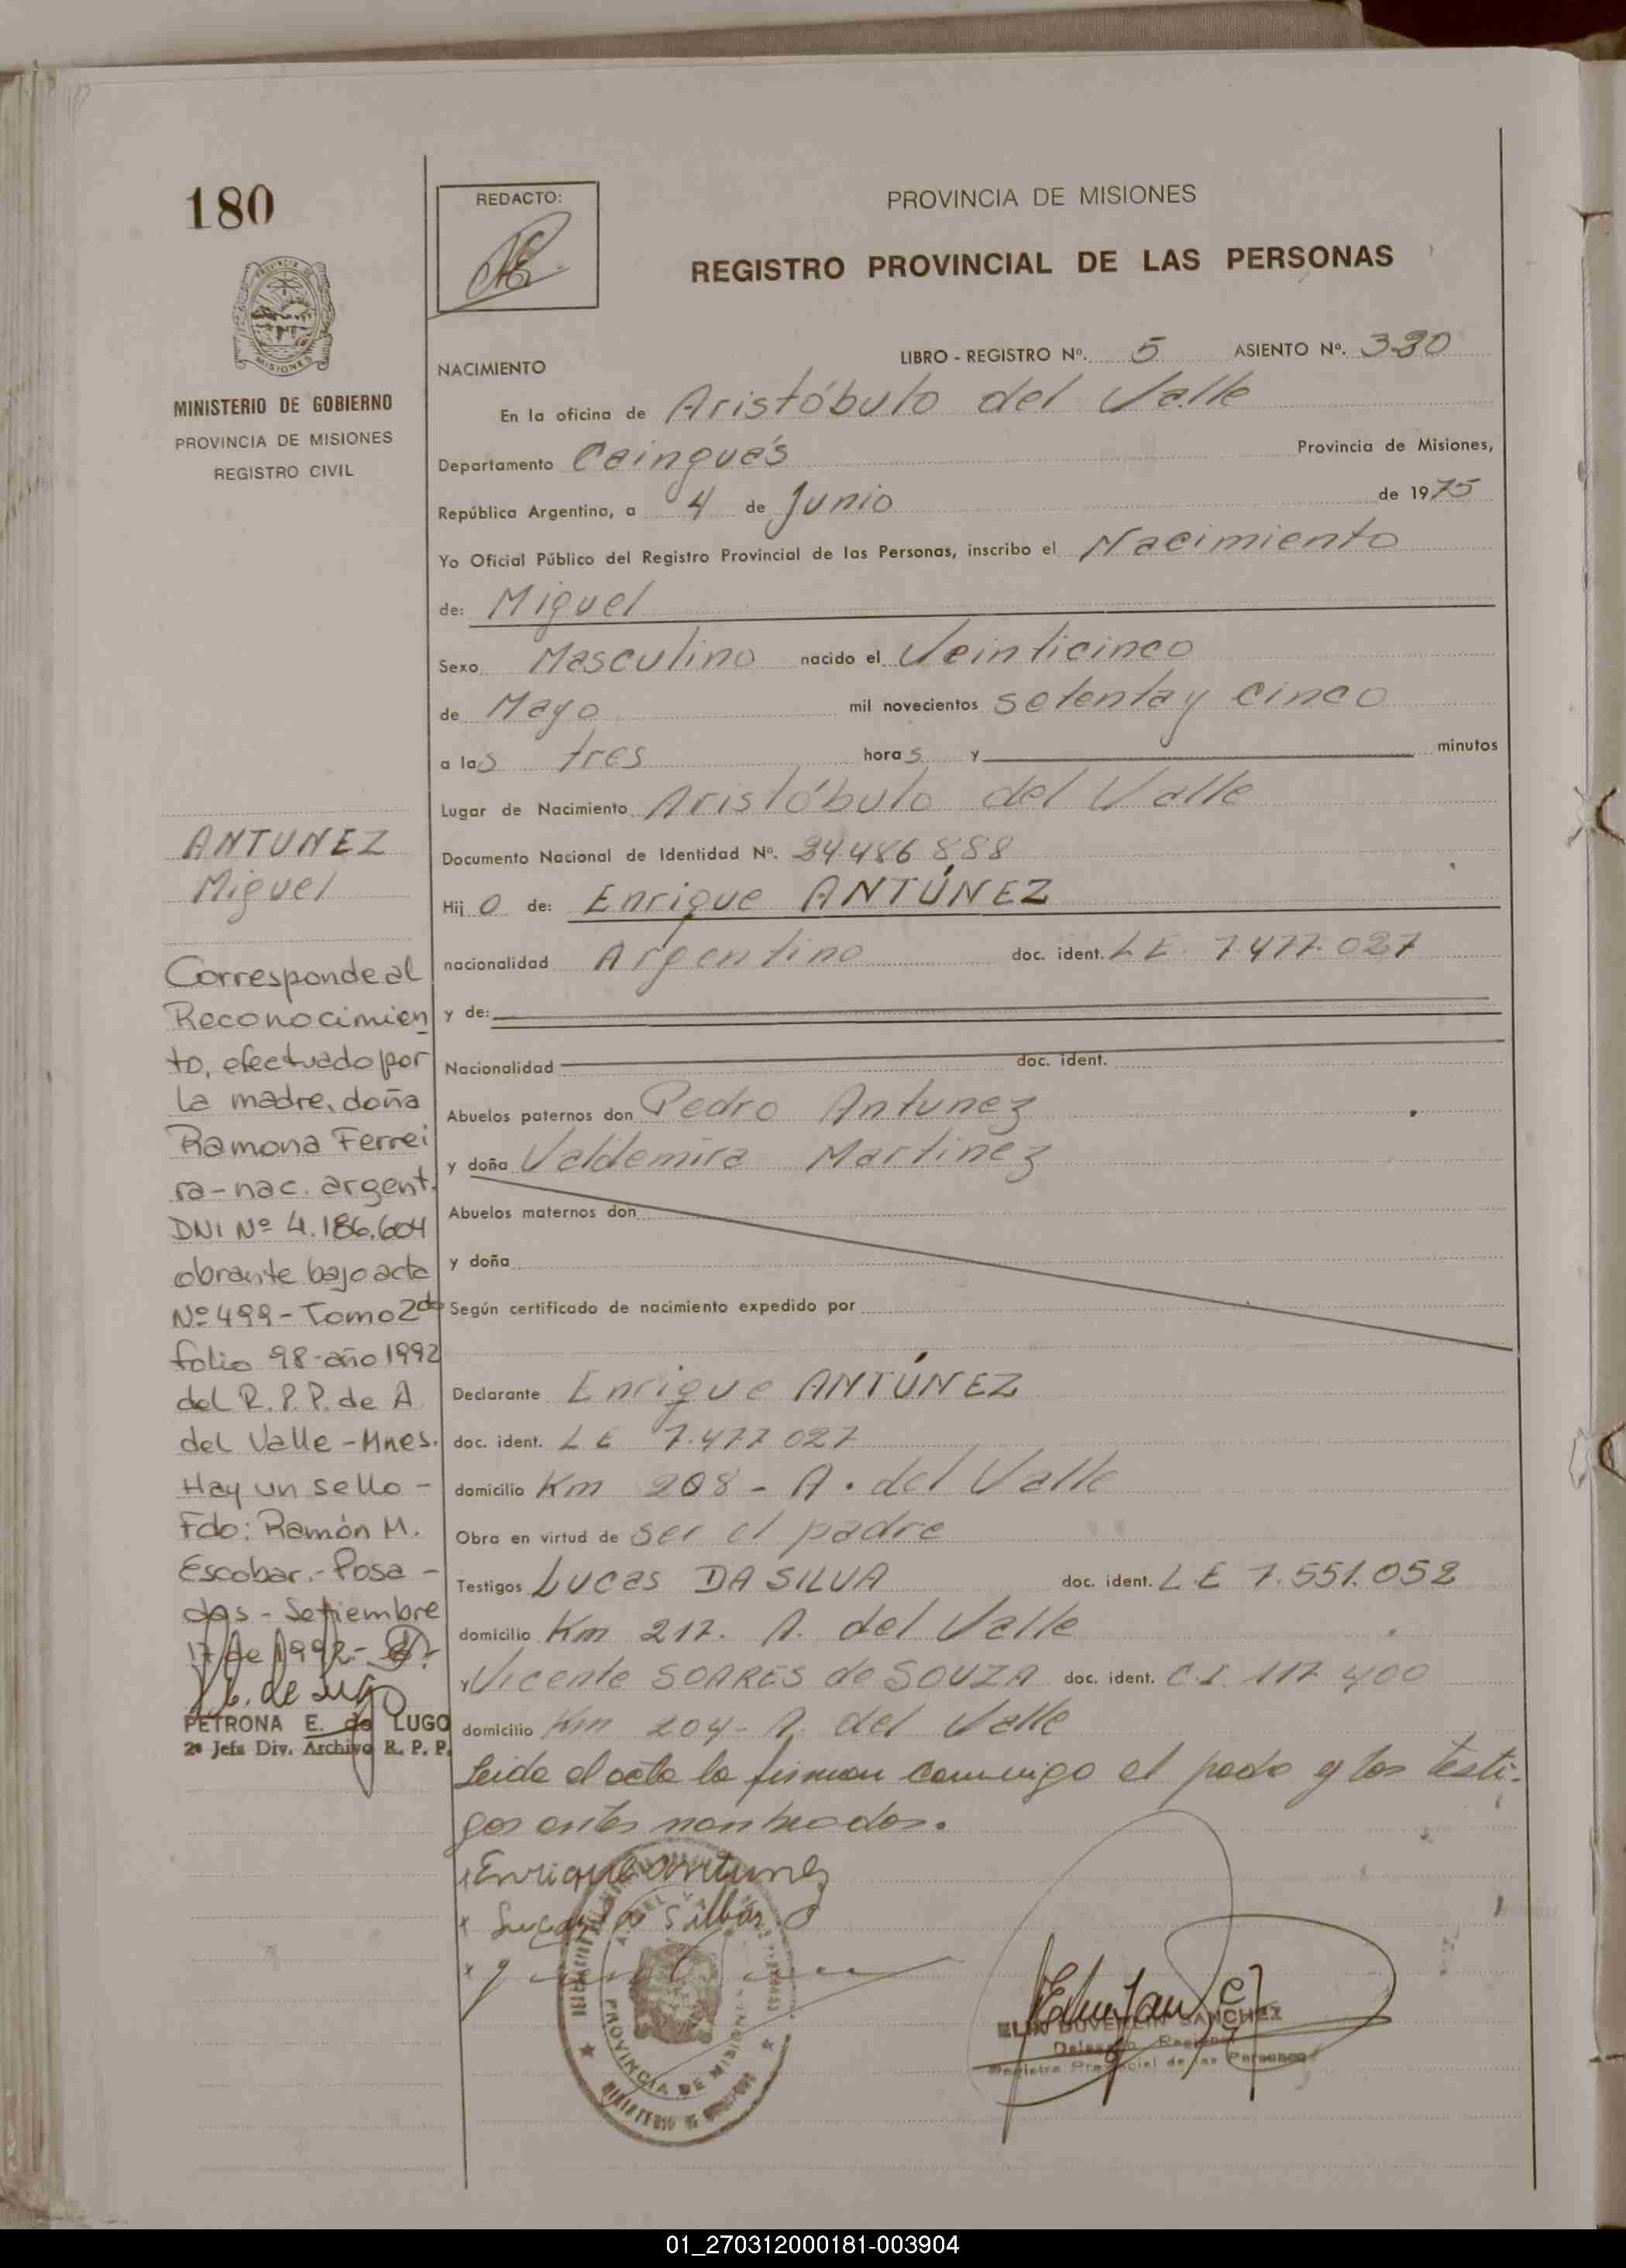 180
REDACTO:
PROVINCIA DE MISIONES
REGISTRO PROVINCIAL DE LAS PERSONAS
MINISTERIO DE GOBIERNO
PROVINCIA DE MISIONES
REGISTRO CIVIL
NACIMIENTO
LIBRO - REGISTRO Nº. 5 ASIENTO Nº. 380
En la oficina de Aristóbulo del Valle
Departamento Cainguás Provincia de Misiones,
República Argentina, a 4 de Junio de 1975
Yo Oficial Público del Registro Provincial de las Personas, inscribo el Nacimiento
de: Miguel
Sexo Masculino nacido el Veinticinco
de Mayo mil novecientos setenta y cinco
a las tres horas y minutos
Lugar de Nacimiento Aristóbulo del Valle
Documento Nacional de Identidad Nº. 24.486.888
Hijo de: Enrique ANTÚNEZ
nacionalidad Argentino doc. ident. LE. 7.477.027
y de:
Nacionalidad doc. ident.
Abuelos paternos don Pedro Antunez
y doña Valdemira Martinez
Abuelos maternos don
y doña
Según certificado de nacimiento expedido por
Declarante Enrique ANTÚNEZ
doc. ident. LE 7.477.027
domicilio Km 208 - A. del Valle
Obra en virtud de ser el padre
Testigos Lucas DA SILVA doc. ident. LE 7.551.052
domicilio Km 217. A. del Valle
y Vicente SOARES de SOUZA doc. ident. C.I. 117.400
domicilio Km 204 - A. del Valle
Leida el acta la firman conmigo el padre y los testi-
gos antes nombrados.
Enrique antunez
ELIN DUVERLIN SANCHEZ
Delegado Regional
Registro Provincial de las Personas
PROVINCIA DE MISIONES
ANTUNEZ
Miguel
Corresponde al
Reconocimien
to, efectuado por
la madre, doña
Ramona Ferrei
ra-nac. argent.
DNI Nº 4.186.604
obrante bajo acta
Nº 499 - Tomo 2do
folio 98-año 1992
del R.P.P. de A.
del Valle - Mnes.
Hay un sello -
Fdo: Ramón M.
Escobar.- Posa -
das - Setiembre
17 de 1992-
PETRONA E. de LUGO
2ª Jefa Div. Archivo R. P. P.
01_270312000181-003904